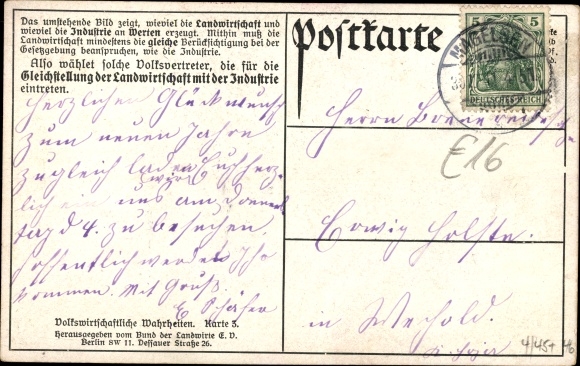 Das umstehende Bild zeigt, wieviel die Landwirtschaft und
und wieviel die Industrie an Werten erzeugt. Mithin muß die
Landwirtschaft mindestens die gleiche Berücksichtigung bei der
Gesetzgebung beanspruchen, wie die Industrie.
Also wählet solche Volksvertreter, die für die
Gleichstellung der Landwirtschaft mit der Industrie
eintreten.
Herzlichen Glückwunsch
zum neuen Jahre
zugleich laden Euch herz-
wir
lich ein uns am Donners
tag d 4. zu besuchen.
hoffentlich werdet Ihr
kommen. Mit Gruß.
E Schäfer
Volkswirtschaftliche Wahrheiten. Karte 3.
Herausgegeben vom Bund der Landwirte E. V.
Berlin SW 11. Dessauer Straße 26.
Postkarte
5 5
DEUTSCHES REICH
Herrn
€16
Holste.
in Wechold.
4/45+